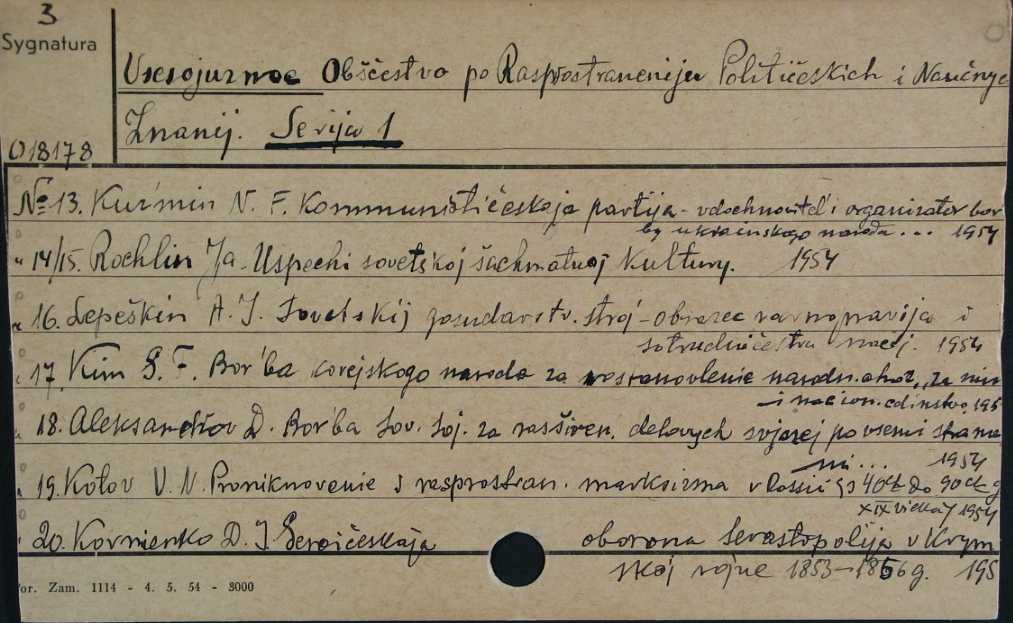 3
Sygnatura
Vsesojuznoe Obščestvo po Rasprostraneniju Političeskich i Naučnyc
Znanij. Serija 1
O18178
№ 13. Kuz'min N. F. Kommunističeskaja partija - vdochnovitel' i organizator bor
by ukrainskogo naroda ... 1954
" 14/15. Rochlin Ja. Uspechi sovetskoj šachmatnoj kul'tury. 1954
" 16. Lepeškin A. I. Sovetskij gosudarstv. stroj - obrazec ravnopravija i
sotrudničestva nacij. 1954
" 17. Kim G. F. Bor'ba korejskogo naroda za vostanovlenie narodn. choz., za mir
i nacion. edinstvo, 195
" 18. Aleksandrov D. Bor'ba Sov. Soj. za rasširen. delovych svjazej po vsemi strana
mi ... 1954
" 19. Kotov V. N. Proniknovenie i rasprostran. marksizma v Rossii (s 40ch do 90ch g
XIX vieka) 1954
" 20. Kornienko D. I. Geroičeskaja oborona Sevastopolja v Krym
skoj vojne 1853-1856 g. 195
or. Zam. 1114 - 4. 5. 54 - 3000